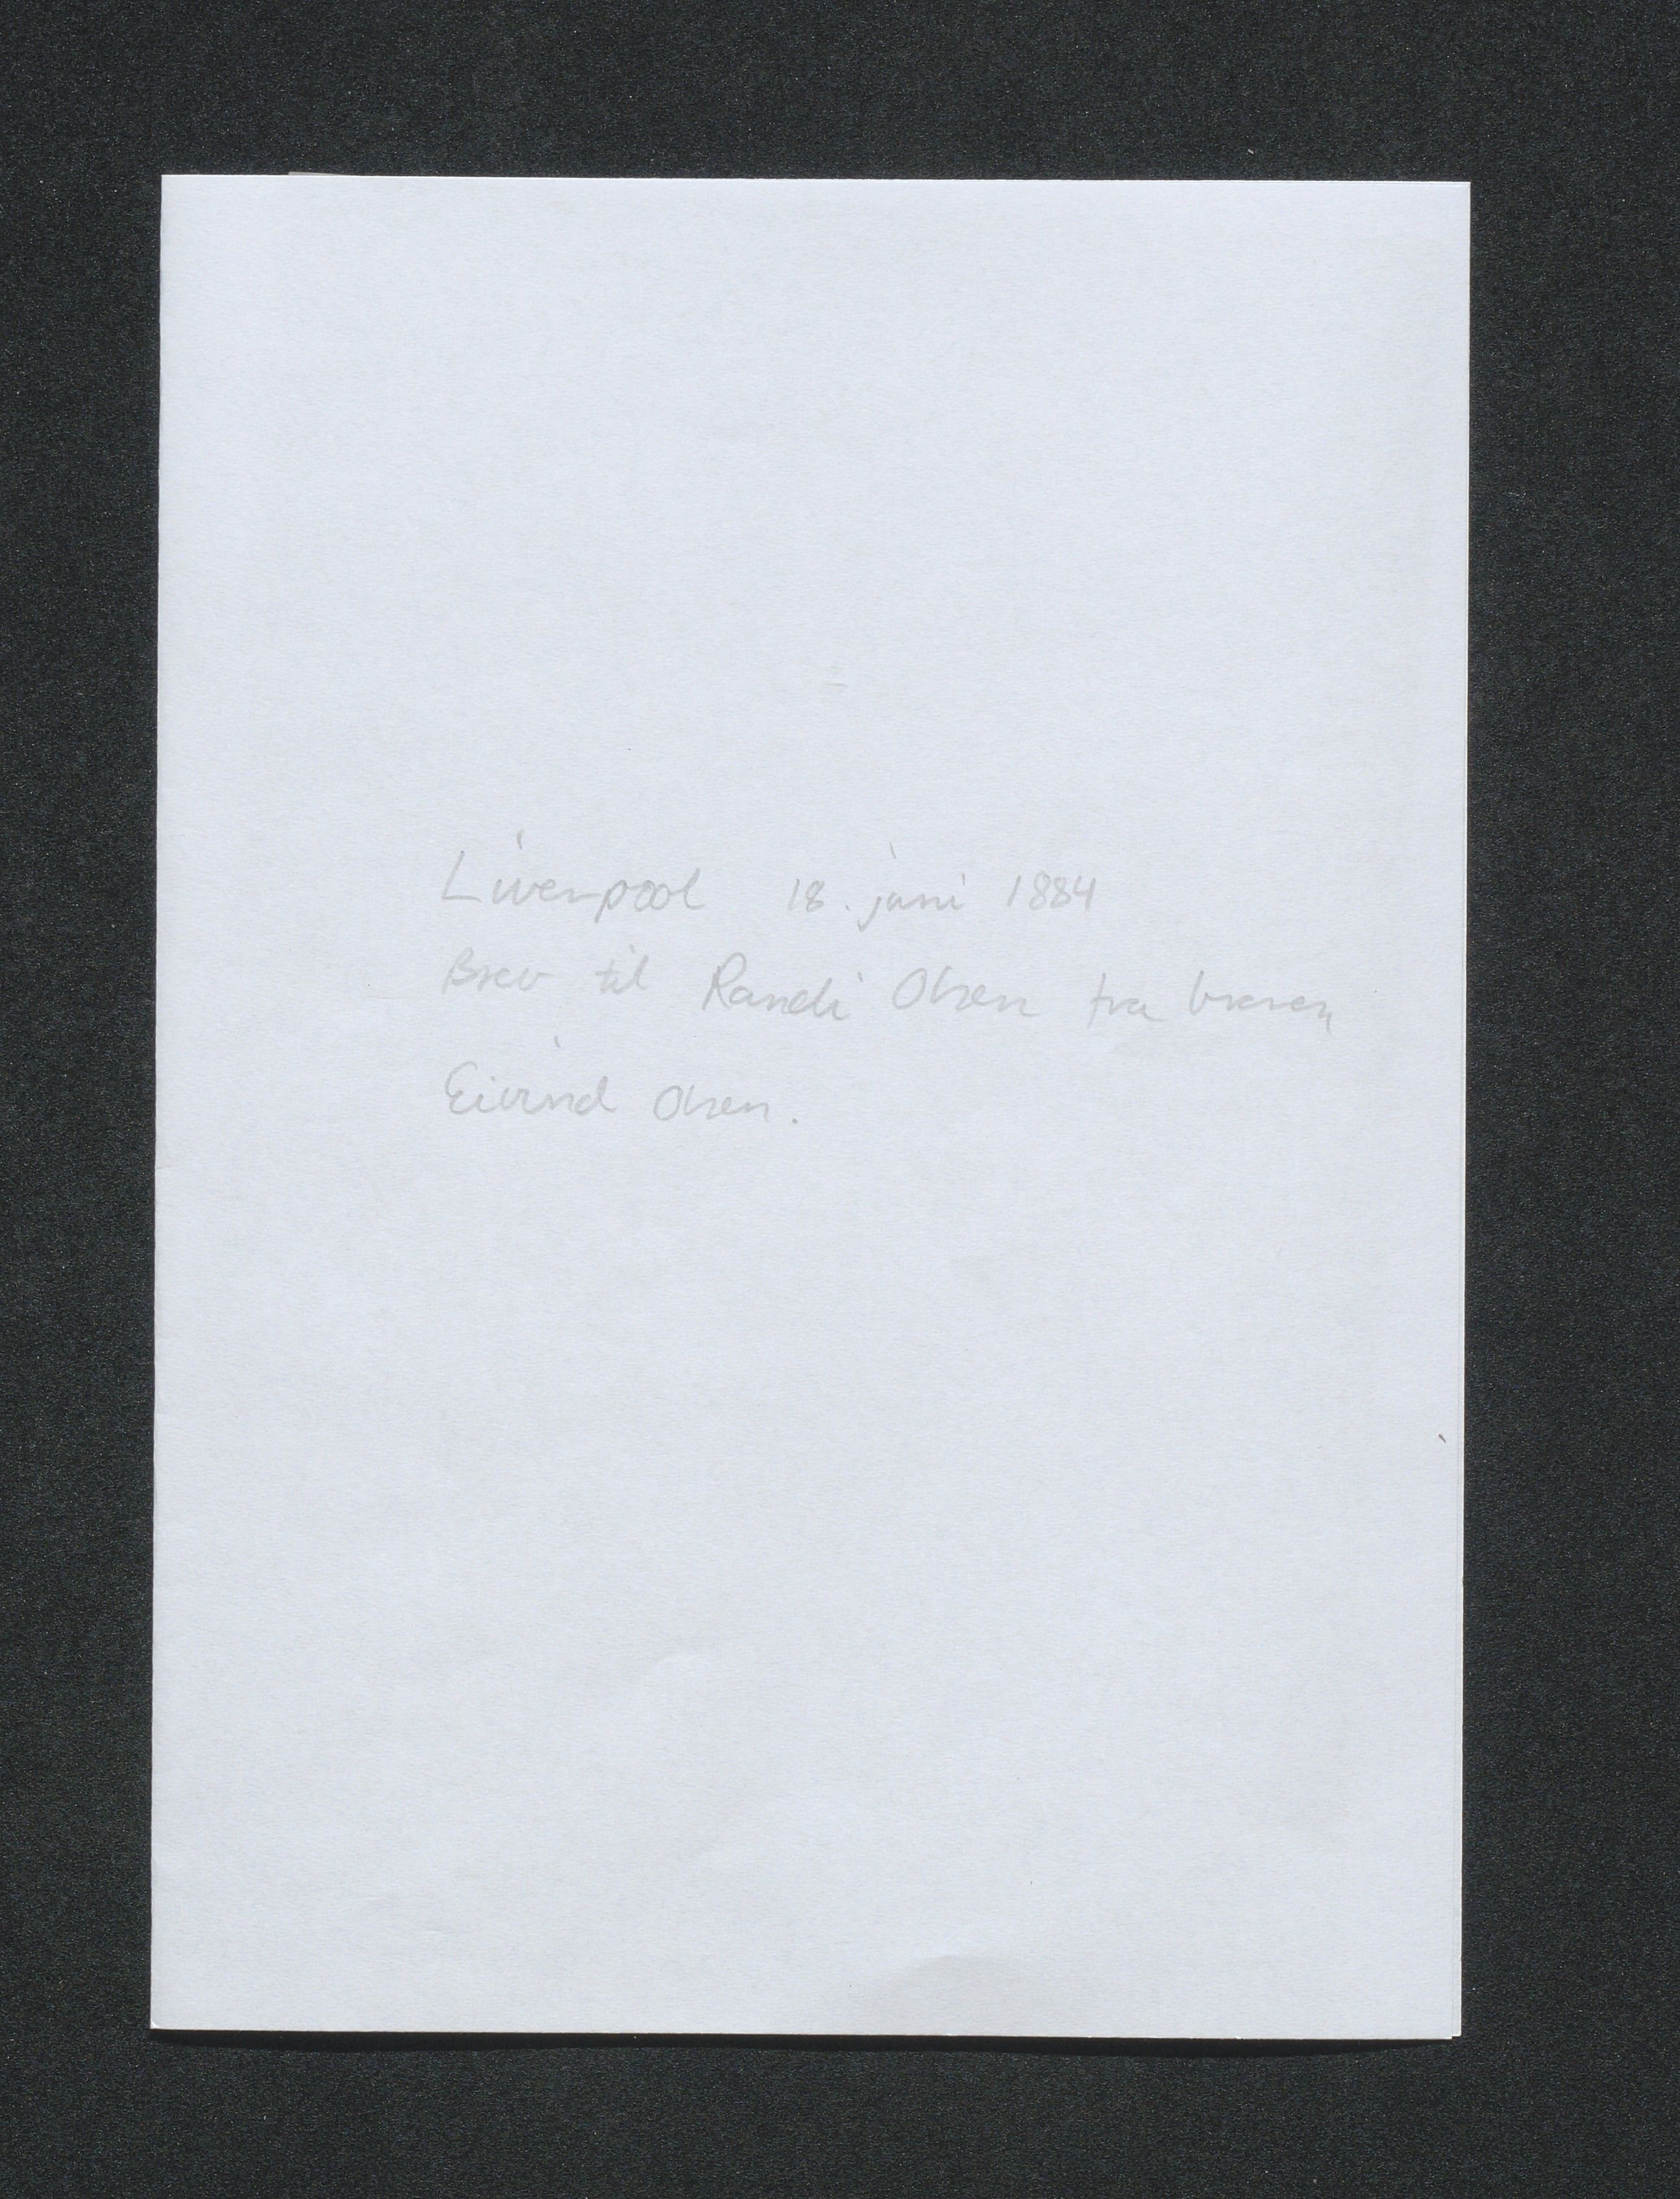 Liverpool 18. juni 1884
Brev til Randi Olsen fra broren
Eivind Olsen.